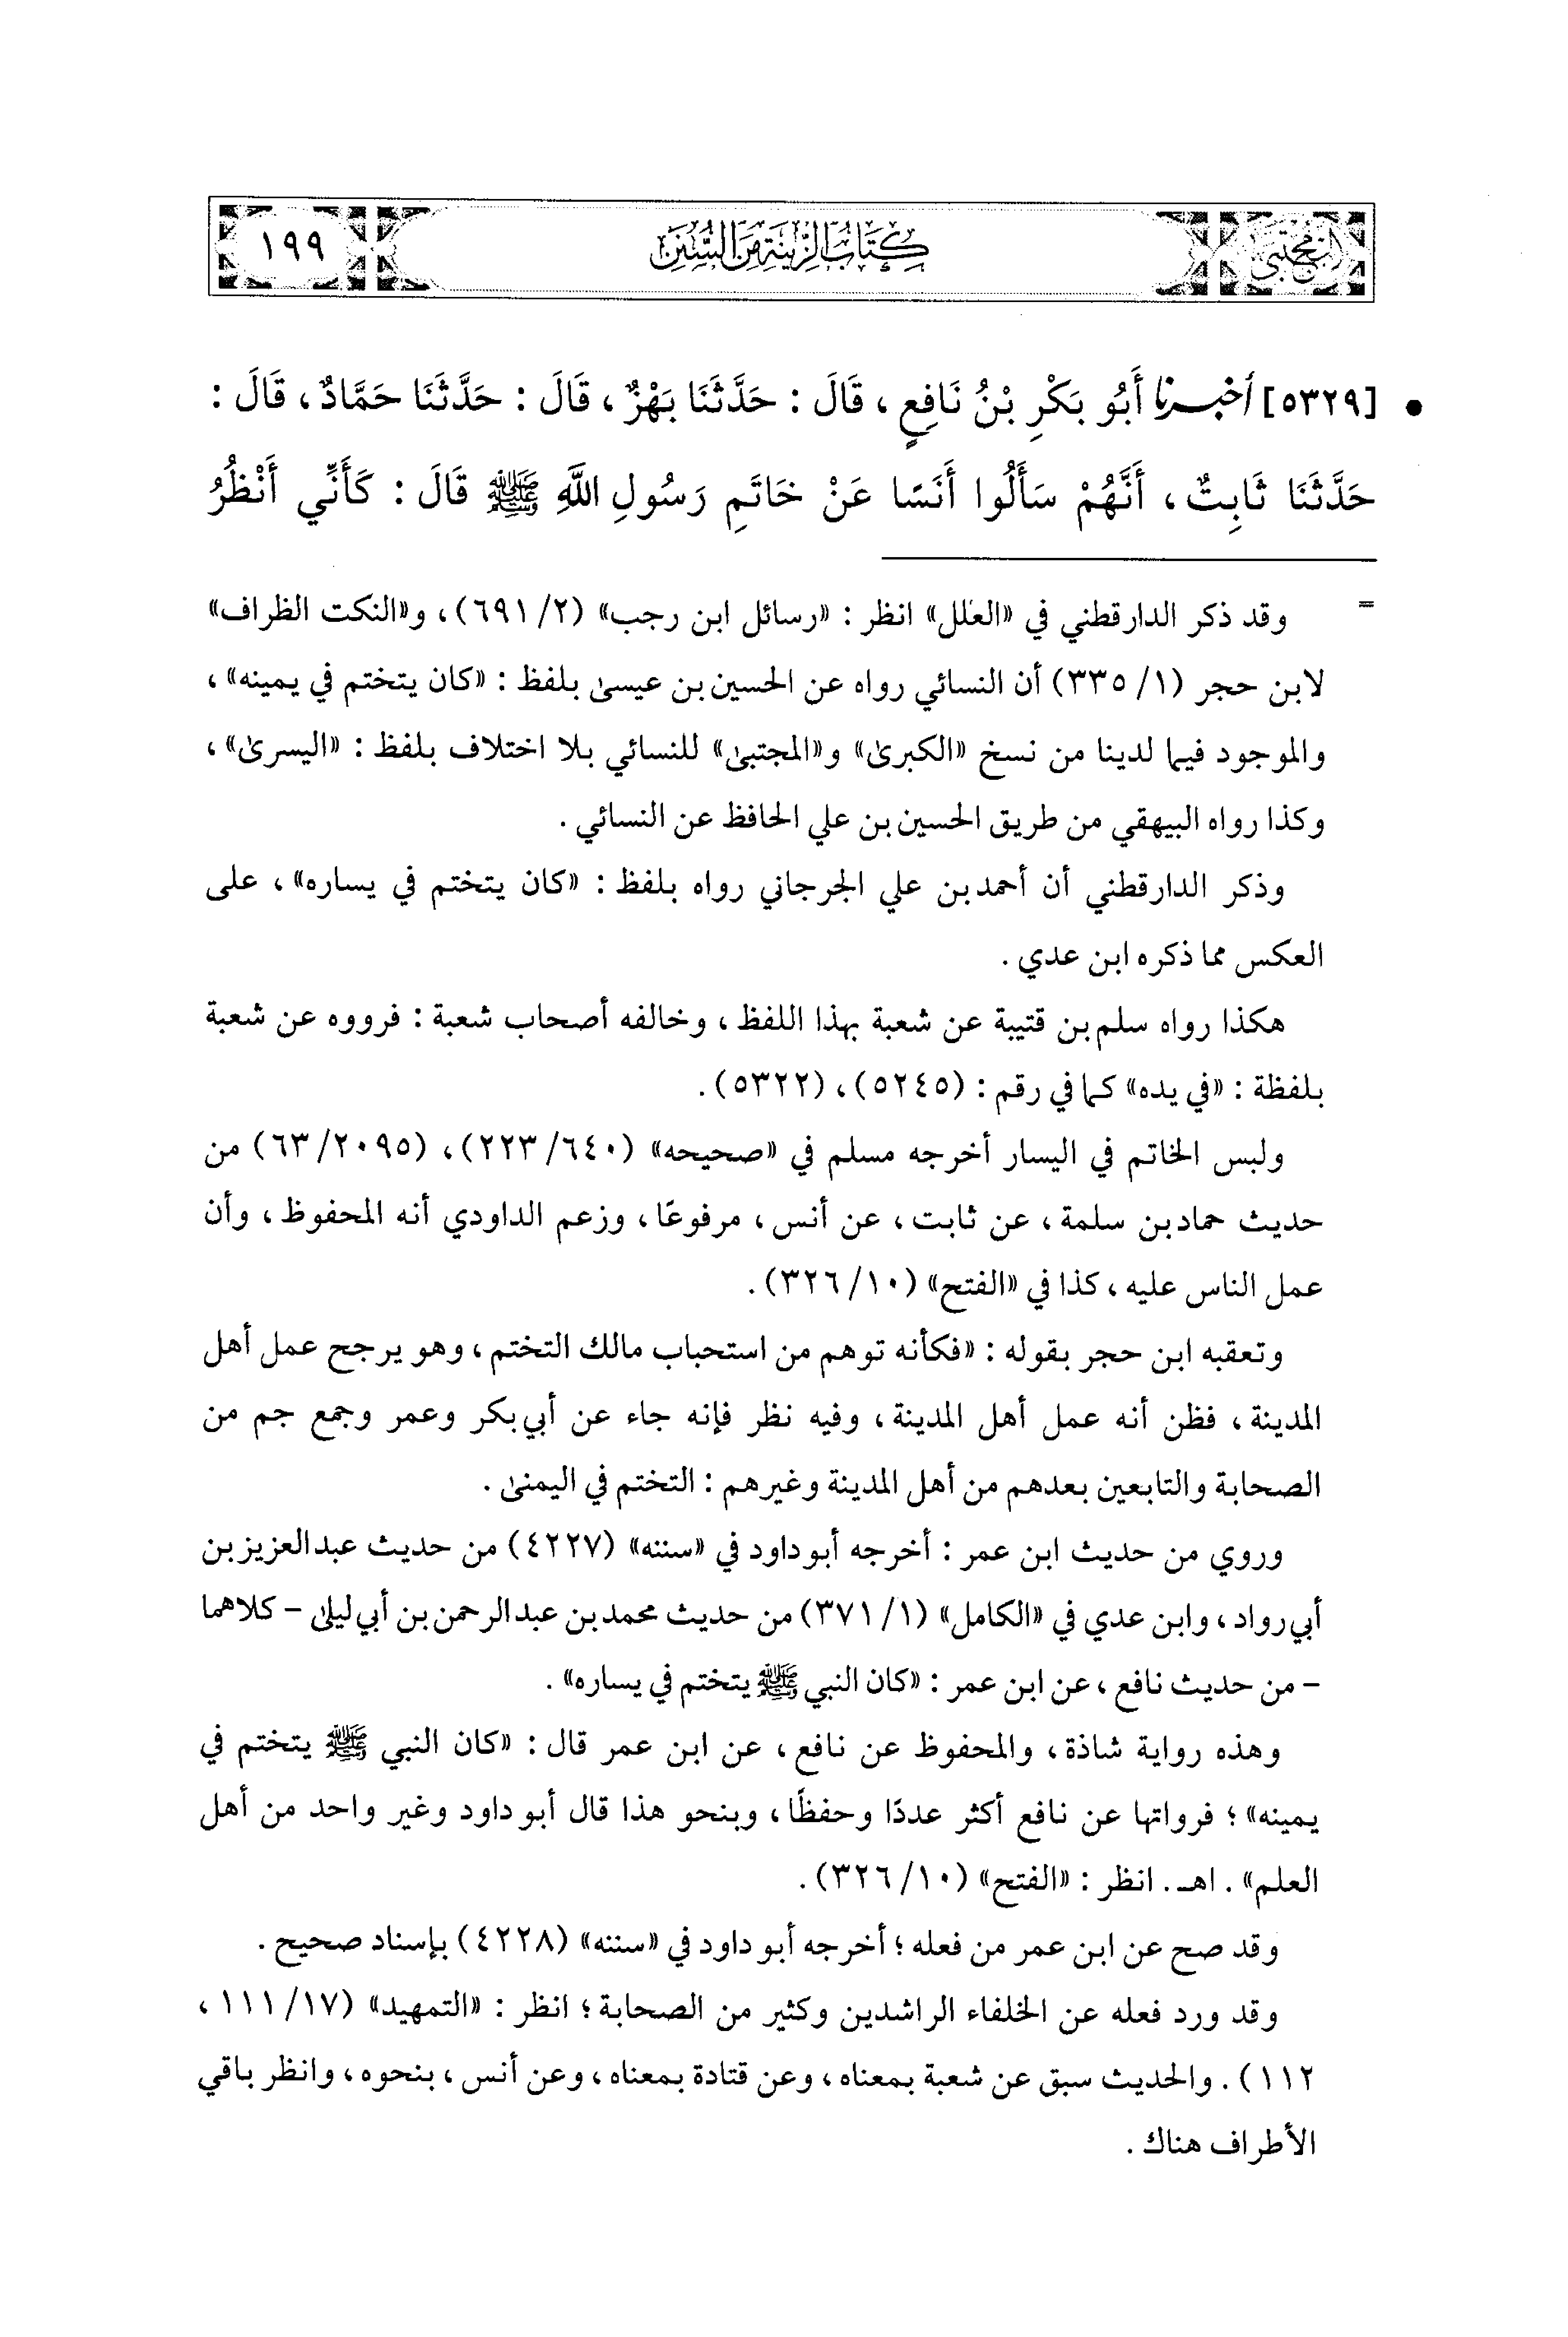 المجتبى
كِتَابُ الزِّينَةِ مِنَ السُّنَنِ
١٩٩
• [٥٣٢٩] أَخْبَرَنَا أَبُو بَكْرِ بْنُ نَافِعٍ ، قَالَ : حَدَّثَنَا بَهْزٌ ، قَالَ : حَدَّثَنَا حَمَّادٌ ، قَالَ :
حَدَّثَنَا ثَابِتٌ ، أَنَّهُمْ سَأَلُوا أَنَسًا عَنْ خَاتَمِ رَسُولِ اللَّهِ ﷺ قَالَ : كَأَنِّي أَنْظُرُ
= وقد ذكر الدارقطني في «العلل» انظر : «رسائل ابن رجب» (٢/ ٦٩١) ، و«النكت الظراف»
لابن حجر (١/ ٣٣٥) أن النسائي رواه عن الحسين بن عيسىٰ بلفظ : «كان يتختم في يمينه» ،
والموجود فيما لدينا من نسخ «الكبرىٰ» و«المجتبىٰ» للنسائي بلا اختلاف بلفظ : «اليسرىٰ» ،
وكذا رواه البيهقي من طريق الحسين بن علي الحافظ عن النسائي .
وذكر الدارقطني أن أحمد بن علي الجرجاني رواه بلفظ : «كان يتختم في يساره» ، على
العكس مما ذكره ابن عدي .
هكذا رواه سلم بن قتيبة عن شعبة بهذا اللفظ ، وخالفه أصحاب شعبة : فرووه عن شعبة
بلفظة : «في يده» كما في رقم : (٥٢٤٥) ، (٥٣٢٢) .
ولبس الخاتم في اليسار أخرجه مسلم في «صحيحه» (٦٤٠/ ٢٢٣) ، (٢٠٩٥/ ٦٣) من
حديث حماد بن سلمة ، عن ثابت ، عن أنس ، مرفوعًا ، وزعم الداودي أنه المحفوظ ، وأن
عمل الناس عليه ، كذا في «الفتح» (١٠/ ٣٢٦) .
وتعقبه ابن حجر بقوله : «فكأنه توهم من استحباب مالك التختم ، وهو يرجح عمل أهل
المدينة ، فظن أنه عمل أهل المدينة ، وفيه نظر فإنه جاء عن أبي بكر وعمر وجمع جم من
الصحابة والتابعين بعدهم من أهل المدينة وغيرهم : التختم في اليمنىٰ .
وروي من حديث ابن عمر : أخرجه أبو داود في «سننه» (٤٢٢٧) من حديث عبد العزيز بن
أبي رواد ، وابن عدي في «الكامل» (١/ ٣٧١) من حديث محمد بن عبد الرحمن بن أبي ليلىٰ - كلاهما
- من حديث نافع ، عن ابن عمر : «كان النبي ﷺ يتختم في يساره» .
وهذه رواية شاذة ، والمحفوظ عن نافع ، عن ابن عمر قال : «كان النبي ﷺ يتختم في
يمينه» ؛ فرواتها عن نافع أكثر عددًا وحفظًا ، وبنحو هذا قال أبو داود وغير واحد من أهل
العلم» . اهـ . انظر : «الفتح» (١٠/ ٣٢٦) .
وقد صح عن ابن عمر من فعله ؛ أخرجه أبو داود في «سننه» (٤٢٢٨) بإسناد صحيح .
وقد ورد فعله عن الخلفاء الراشدين وكثير من الصحابة ؛ انظر : «التمهيد» (١٧/ ١١١ ،
١١٢) . والحديث سبق عن شعبة بمعناه ، وعن قتادة بمعناه ، وعن أنس ، بنحوه ، وانظر باقي
الأطراف هناك .